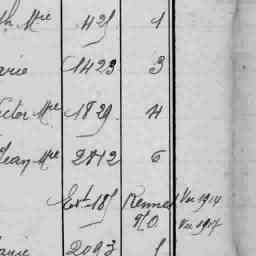 th Mre 425 1
arie 1423 3
ictor Mre 1829 4
Jean Mre 2812 6
Ext. 185 Rennes Vu 1914
90. Vu 1917
anie 2093 1